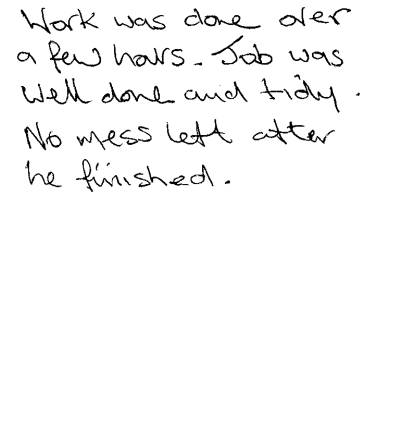 Work was done over
a few hours. Job was
well done and tidy.
No mess left after
he finished.